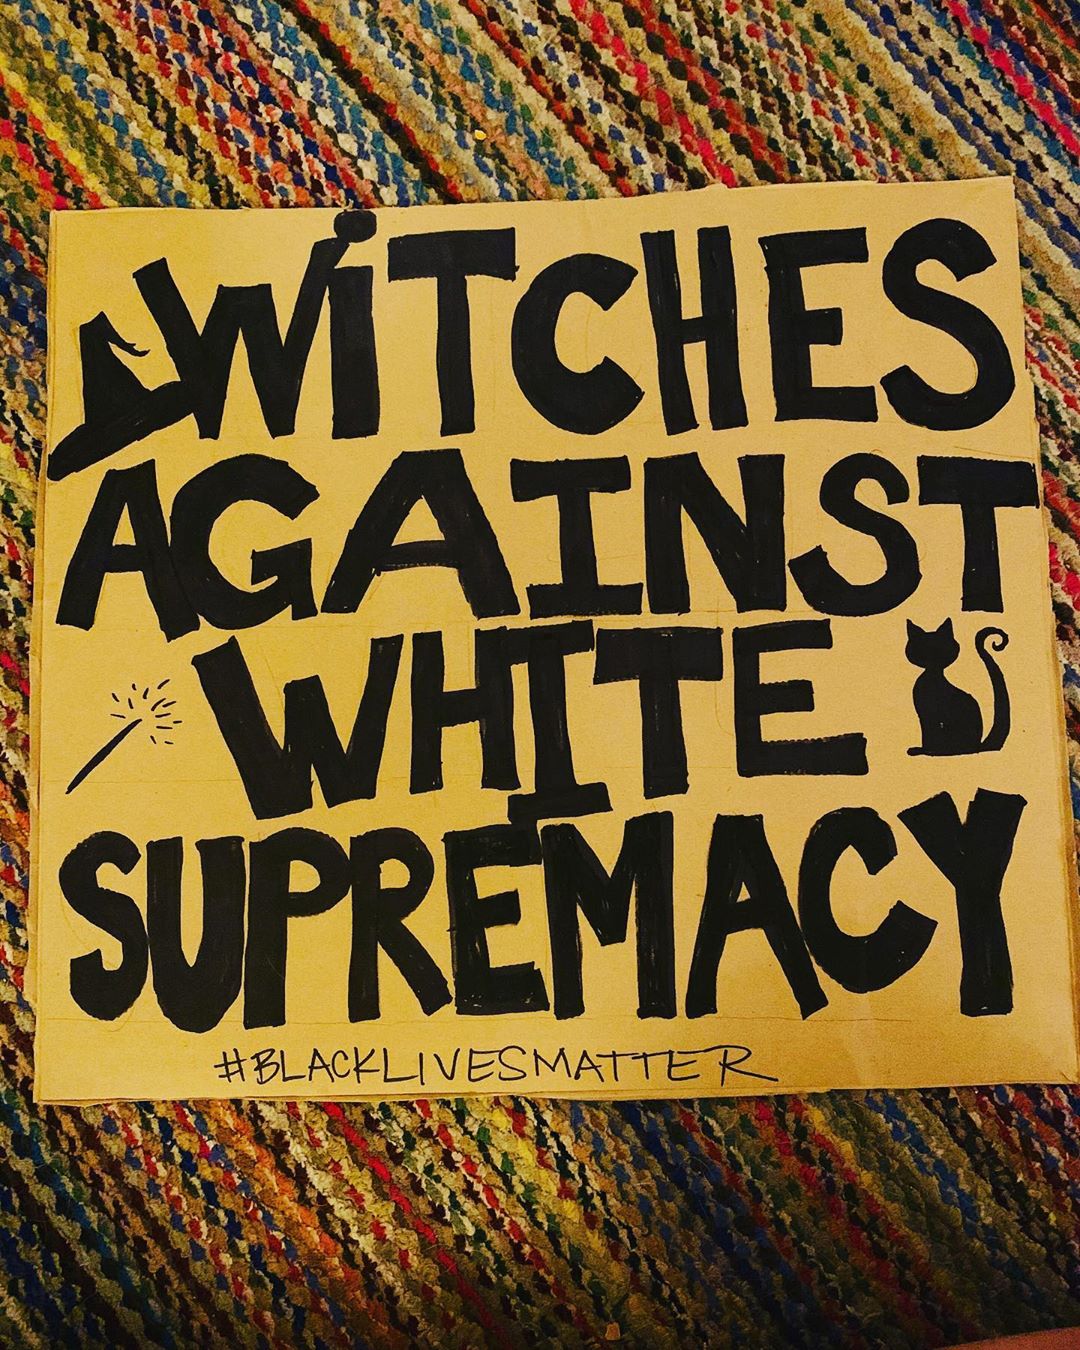 WiTCHES
AGAINST
WHITE
SUPREMACY
#BLACKLIVESMATTER